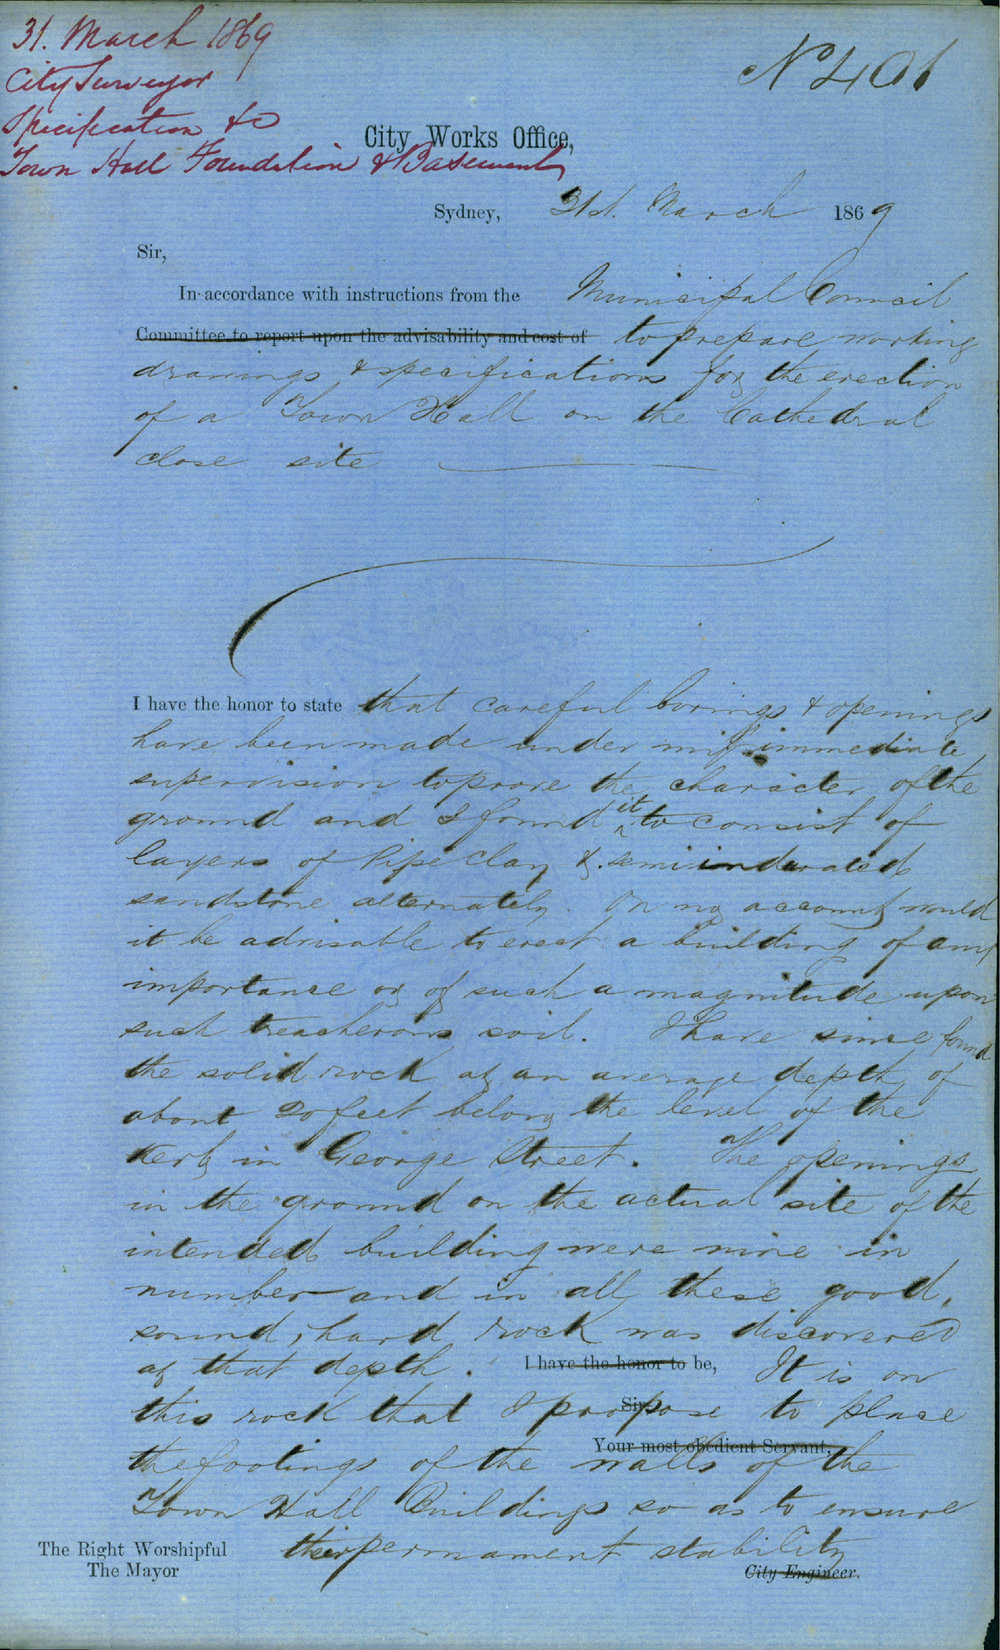 31. March 1869
City Surveyor
Specification &c
Town Hall Foundation & Basement
No 401
City Works Office,
Sydney, 31st. March 1869
Sir,
In accordance with instructions from the Municipal Council
Committee to report upon the advisability and cost of to prepare working
drawings & specifications for the erection
of a Town Hall on the Cathedral
close site
I have the honor to state that careful borings & openings
have been made under my immediate
supervision to prove the character of the
ground and I found it to consist of
layers of Pipe clay & semi indurated
sandstone alternately. On no account would
it be advisable to erect a building of any
importance or of such a magnitude upon
such treacherous soil. I have since found
the solid rock at an average depth of
about 20 feet below the level of the
Kerb in George Street. The openings
in the ground on the actual site of the
intended building were nine in
number and in all these good,
sound, hard rock was discovered
at that depth. I have the honor to be, It is on
Sir,
this rock that I propose to place
Your most obedient Servant,
the footings of the walls of the
Town Hall Buildings so as to ensure
their permanent stability
The Right Worshipful
The Mayor
City Engineer.